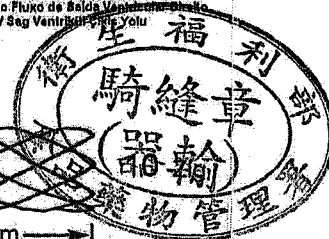 o Fluxo de Saída Ventricular Direito
/ Sağ Ventrikül Çıkış Yolu
衛生福利部
騎縫章
(器輸)
食品藥物管理署
m